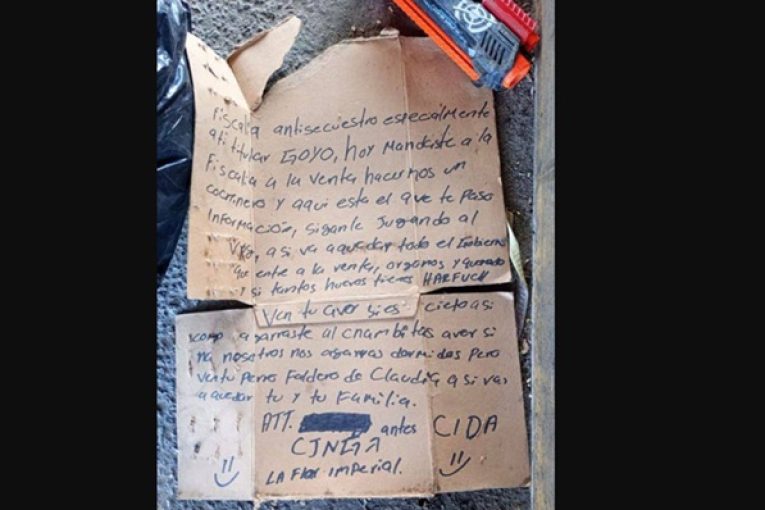 Fiscalia antisecuestro especialmente
ati titular GOYO, hoy Mandaste a la
Fiscalia a la venta hacernos un
cocninero y aqui esta el que te Paso
Información, siganle Jugando al
Vrg, a si va aquedar todo el Gobierno
que ente a la venta, organos y
y si tantos huevos tienes HARFUCH
Ven tu aver si es cieto asi
como agarraste al cnambitas aver si
na nosotros nos agarras dormidos Pero
ven tu Perro Faldero de Claudia a si vas
a quedar tu y tu Familia.
ATT. antes CIDA
CJNGA
LA Flor imperial.